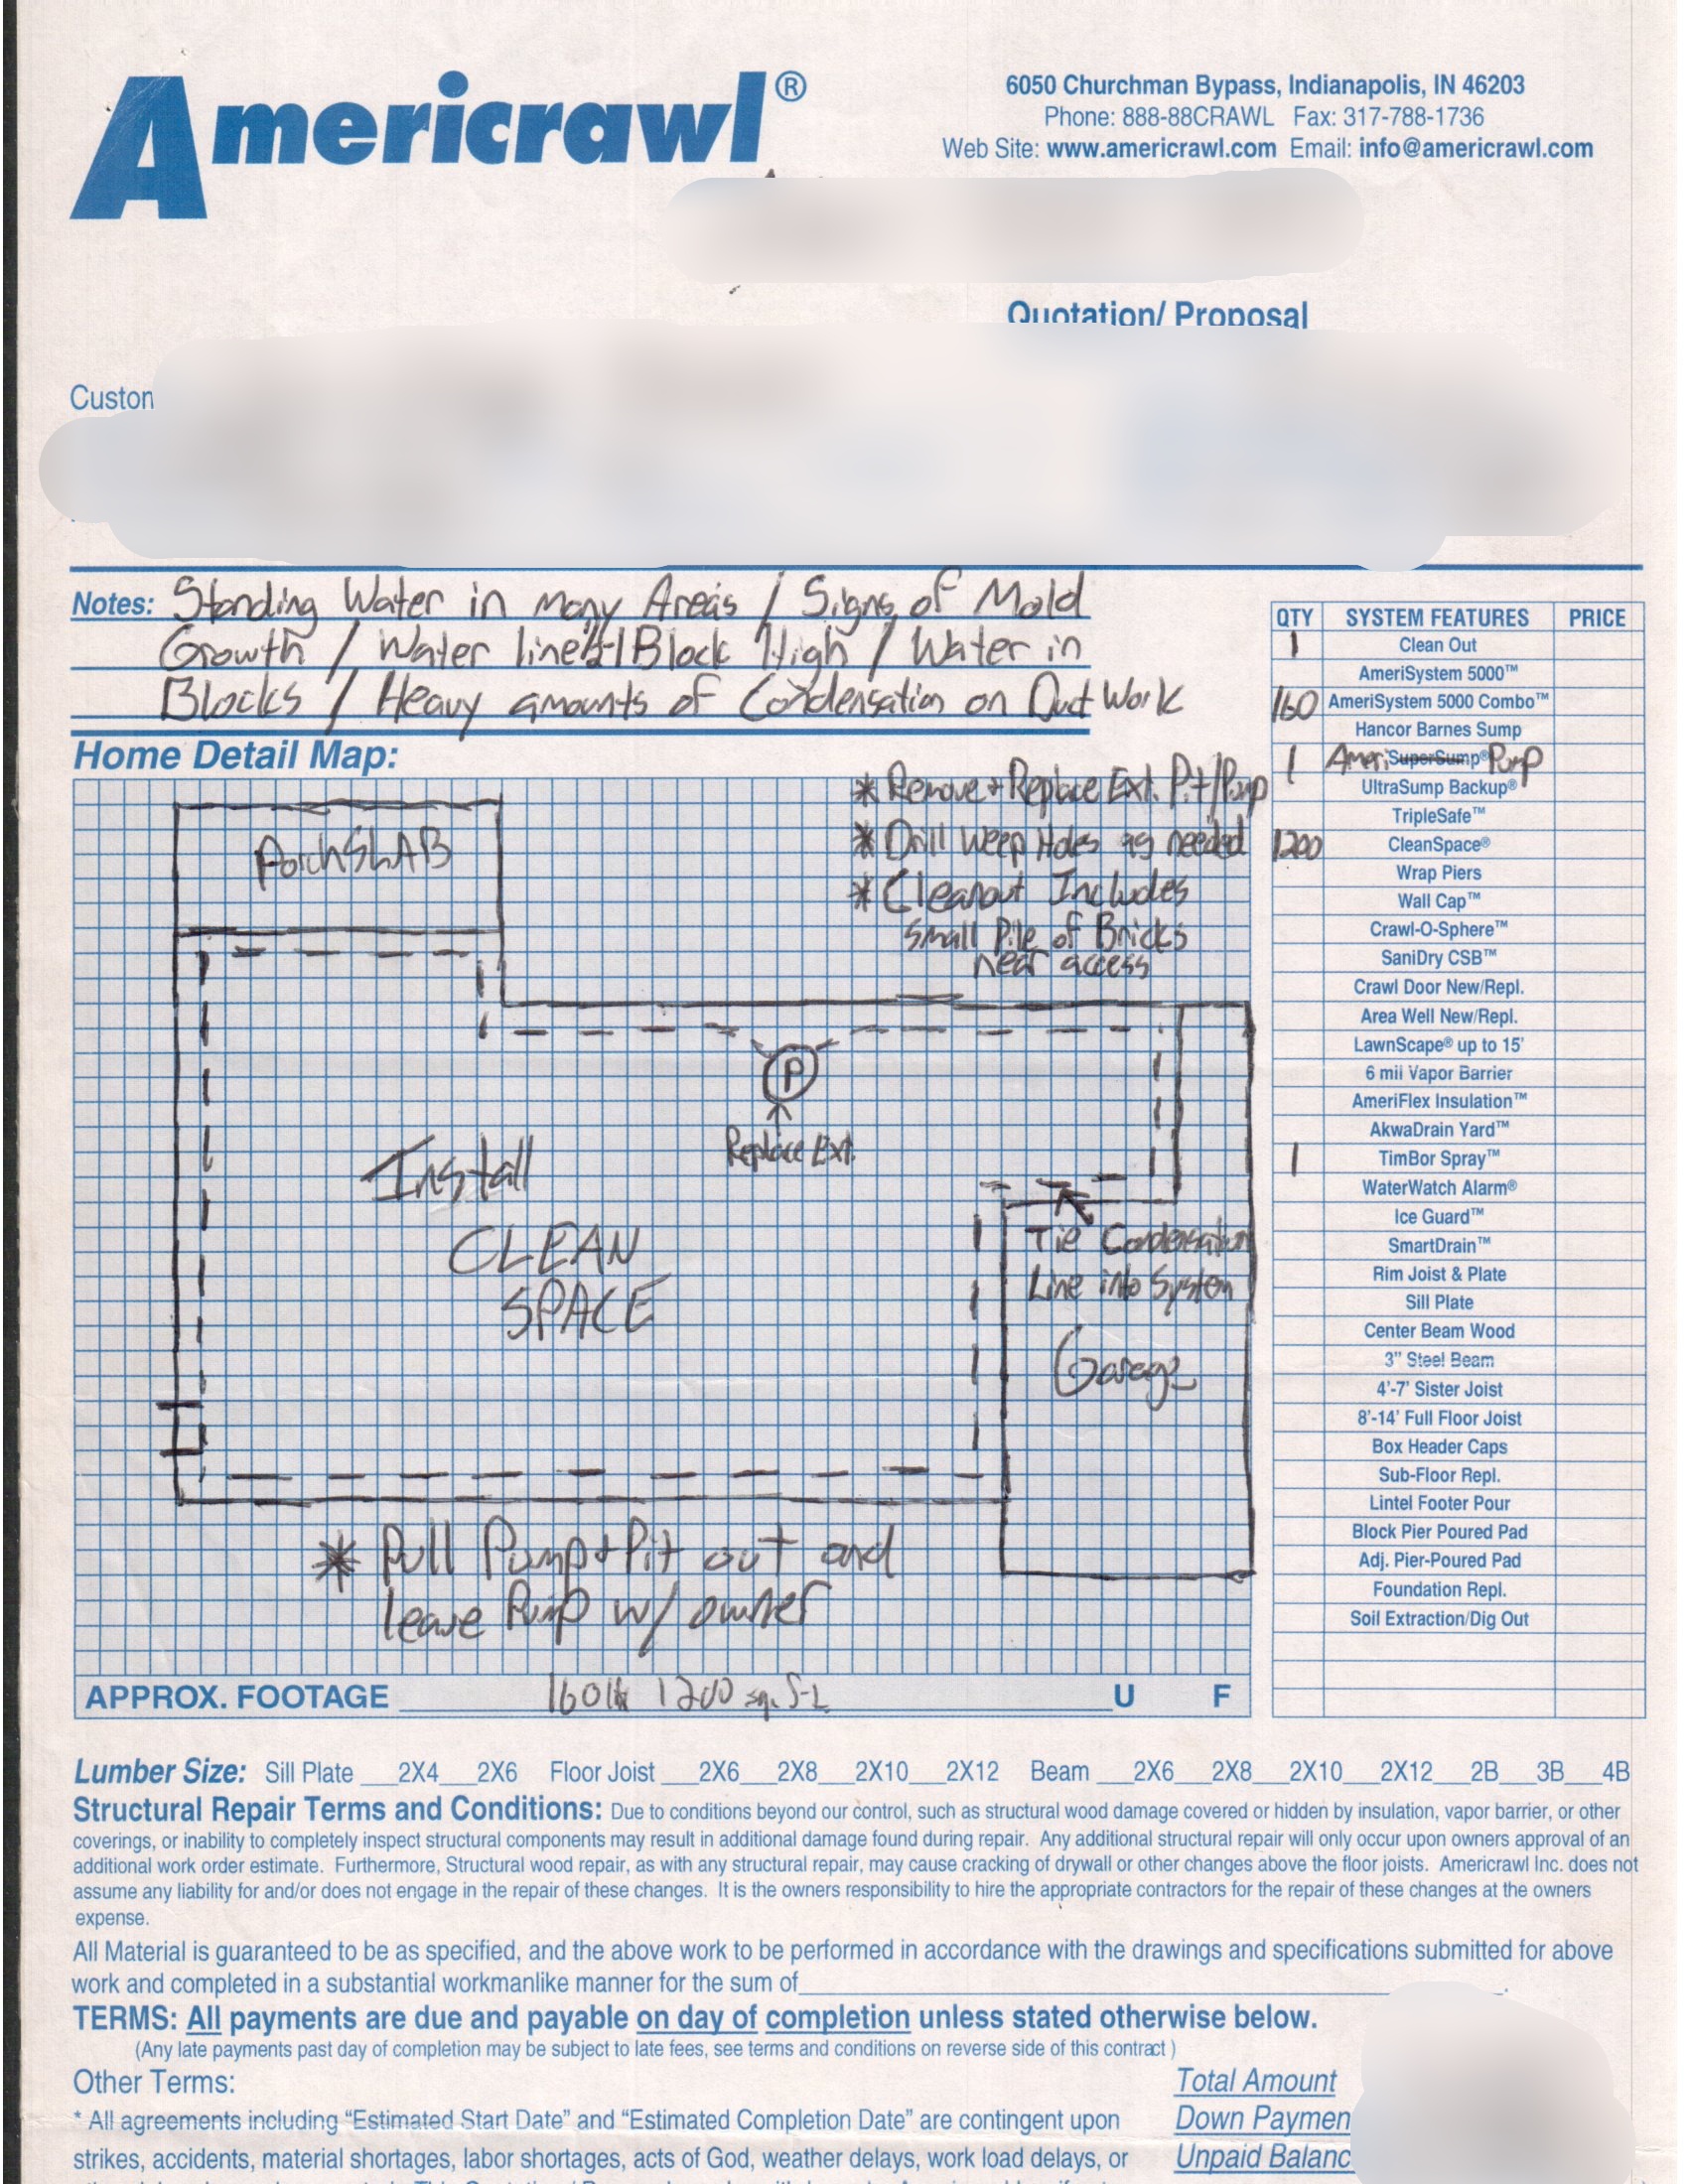 Americrawl®
6050 Churchman Bypass, Indianapolis, IN 46203
Phone: 888-88CRAWL Fax: 317-788-1736
Web Site: www.americrawl.com Email: info@americrawl.com
Quotation/ Proposal
Custom
Notes: Standing Water in many Areas / Signs of Mold
Growth / Water line 1 Block High / Water in
Blocks / Heavy amounts of Condensation on Duct Work
Home Detail Map:
* Remove + Replace Ext. Pit/Pump
* Drill Weep Holes as needed
* Cleanout Includes
Small Pile of Bricks
near access
Porch SLAB
P
Replace Ext.
Install
CLEAN
SPACE
Tie Condensation
Line into System
Garage
* Pull Pump + Pit out and
leave Pump w/ owner
APPROX. FOOTAGE 160 1200 sq. U F
QTY SYSTEM FEATURES PRICE
1 Clean Out
AmeriSystem 5000™
160 AmeriSystem 5000 Combo™
Hancor Barnes Sump
1 Ameri SuperSump® Pump
UltraSump Backup®
TripleSafe™
1200 CleanSpace®
Wrap Piers
Wall Cap™
Crawl-O-Sphere™
SaniDry CSB™
Crawl Door New/Repl.
Area Well New/Repl.
LawnScape® up to 15'
6 mil Vapor Barrier
AmeriFlex Insulation™
AkwaDrain Yard™
1 TimBor Spray™
WaterWatch Alarm®
Ice Guard™
SmartDrain™
Rim Joist & Plate
Sill Plate
Center Beam Wood
3" Steel Beam
4'-7' Sister Joist
8'-14' Full Floor Joist
Box Header Caps
Sub-Floor Repl.
Lintel Footer Pour
Block Pier Poured Pad
Adj. Pier-Poured Pad
Foundation Repl.
Soil Extraction/Dig Out
Lumber Size: Sill Plate ___2X4___2X6 Floor Joist ___2X6___2X8___2X10___2X12 Beam ___2X6___2X8___2X10___2X12___2B___3B___4B
Structural Repair Terms and Conditions: Due to conditions beyond our control, such as structural wood damage covered or hidden by insulation, vapor barrier, or other
coverings, or inability to completely inspect structural components may result in additional damage found during repair. Any additional structural repair will only occur upon owners approval of an
additional work order estimate. Furthermore, Structural wood repair, as with any structural repair, may cause cracking of drywall or other changes above the floor joists. Americrawl Inc. does not
assume any liability for and/or does not engage in the repair of these changes. It is the owners responsibility to hire the appropriate contractors for the repair of these changes at the owners
expense.
All Material is guaranteed to be as specified, and the above work to be performed in accordance with the drawings and specifications submitted for above
work and completed in a substantial workmanlike manner for the sum of
TERMS: All payments are due and payable on day of completion unless stated otherwise below.
(Any late payments past day of completion may be subject to late fees, see terms and conditions on reverse side of this contract )
Other Terms:
* All agreements including “Estimated Start Date” and “Estimated Completion Date” are contingent upon
strikes, accidents, material shortages, labor shortages, acts of God, weather delays, work load delays, or
Total Amount
Down Paymen
Unpaid Balanc